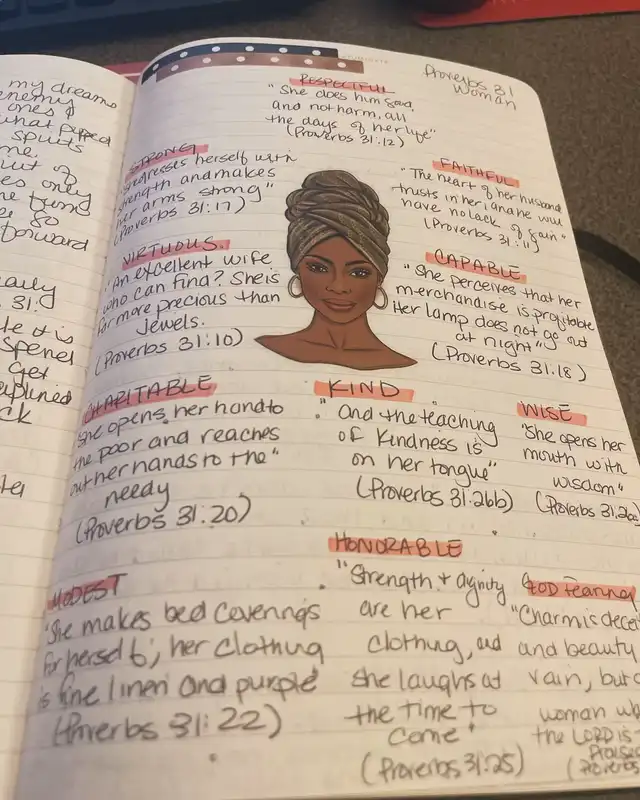 my dreams
enemy
ones &
what popped
spirits
me.
out of
es only
me turns
80
forward
31.
It is
Spend
Get
explained
Proverbs 31
Woman
RESPECTFUL
"She does him good,
and not harm, all
the days of her life"
(Proverbs 31:12)
STRONG
dresses herself with
strength and makes
her arms strong"
(Proverbs 31:17)
FAITHFUL
"The heart of her husband
trusts in her, and he will
have no lack of gain"
(Proverbs 31:11)
VIRTUOUS.
"An excellent wife
who can find? She is
far more precious than
Jewels.
(Proverbs 31:10)
CAPABLE
"She perceives that her
merchandise is profitable
Her lamp does not go out
at night"
(Proverbs 31:18)
CHARITABLE
She opens her hand to
the poor and reaches
out her hands to the"
needy
(Proverbs 31:20)
KIND
"And the teaching
of Kindness is
on her tongue"
(Proverbs 31:26b)
WISE
"She opens her
mouth with
wisdom"
(Proverbs 31:26a
MODEST
"She makes bed coverings
for herself; her clothing
is fine linen and purple
(Proverbs 31:22)
HONORABLE
"Strength + dignity
are her
clothing, and
she laughs at
the time to
come"
(Proverbs 31:25)
GOD Fearing
"Charm is decei
and beauty
vain, but a
woman wh
the LORD is
Praised
(Proverbs